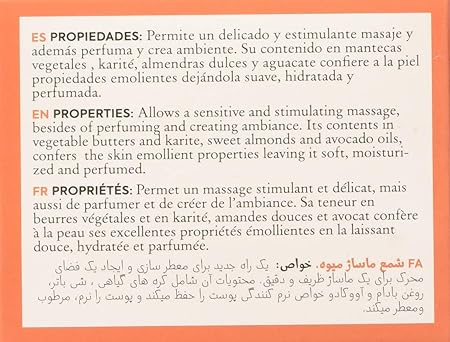 ES PROPIEDADES: Permite un delicado y estimulante masaje y
además perfuma y crea ambiente. Su contenido en mantecas
vegetales , karité, almendras dulces y aguacate confiere a la piel
propiedades emolientes dejándola suave, hidratada y
perfumada.
EN PROPERTIES: Allows a sensitive and stimulating massage,
besides of perfuming and creating ambiance. Its contents in
vegetable butters and karite, sweet almonds and avocado oils,
confers the skin emollient properties leaving it soft, moisturi-
zed and perfumed.
FR PROPRIÉTÉS: Permet un massage stimulant et délicat, mais
aussi de parfumer et de créer de l'ambiance. Sa teneur en
beurres végétales et en karité, amandes douces et avocat confère
à la peau ses excellentes propriétés émollientes en la laissant
douce, hydratée et parfumée.
FA شمع ماساژ میوه. خواص: یک راه جدید برای معطر سازی و ایجاد یک فضای
محرک برای یک ماساژ ظریف و دقیق. محتویات آن شامل کره های گیاهی ، شی باتر،
روغن بادام و آووکادو خواص نرم کنندگی پوست را حفظ میکند و پوست را نرم، مرطوب
ومعطر میکند.